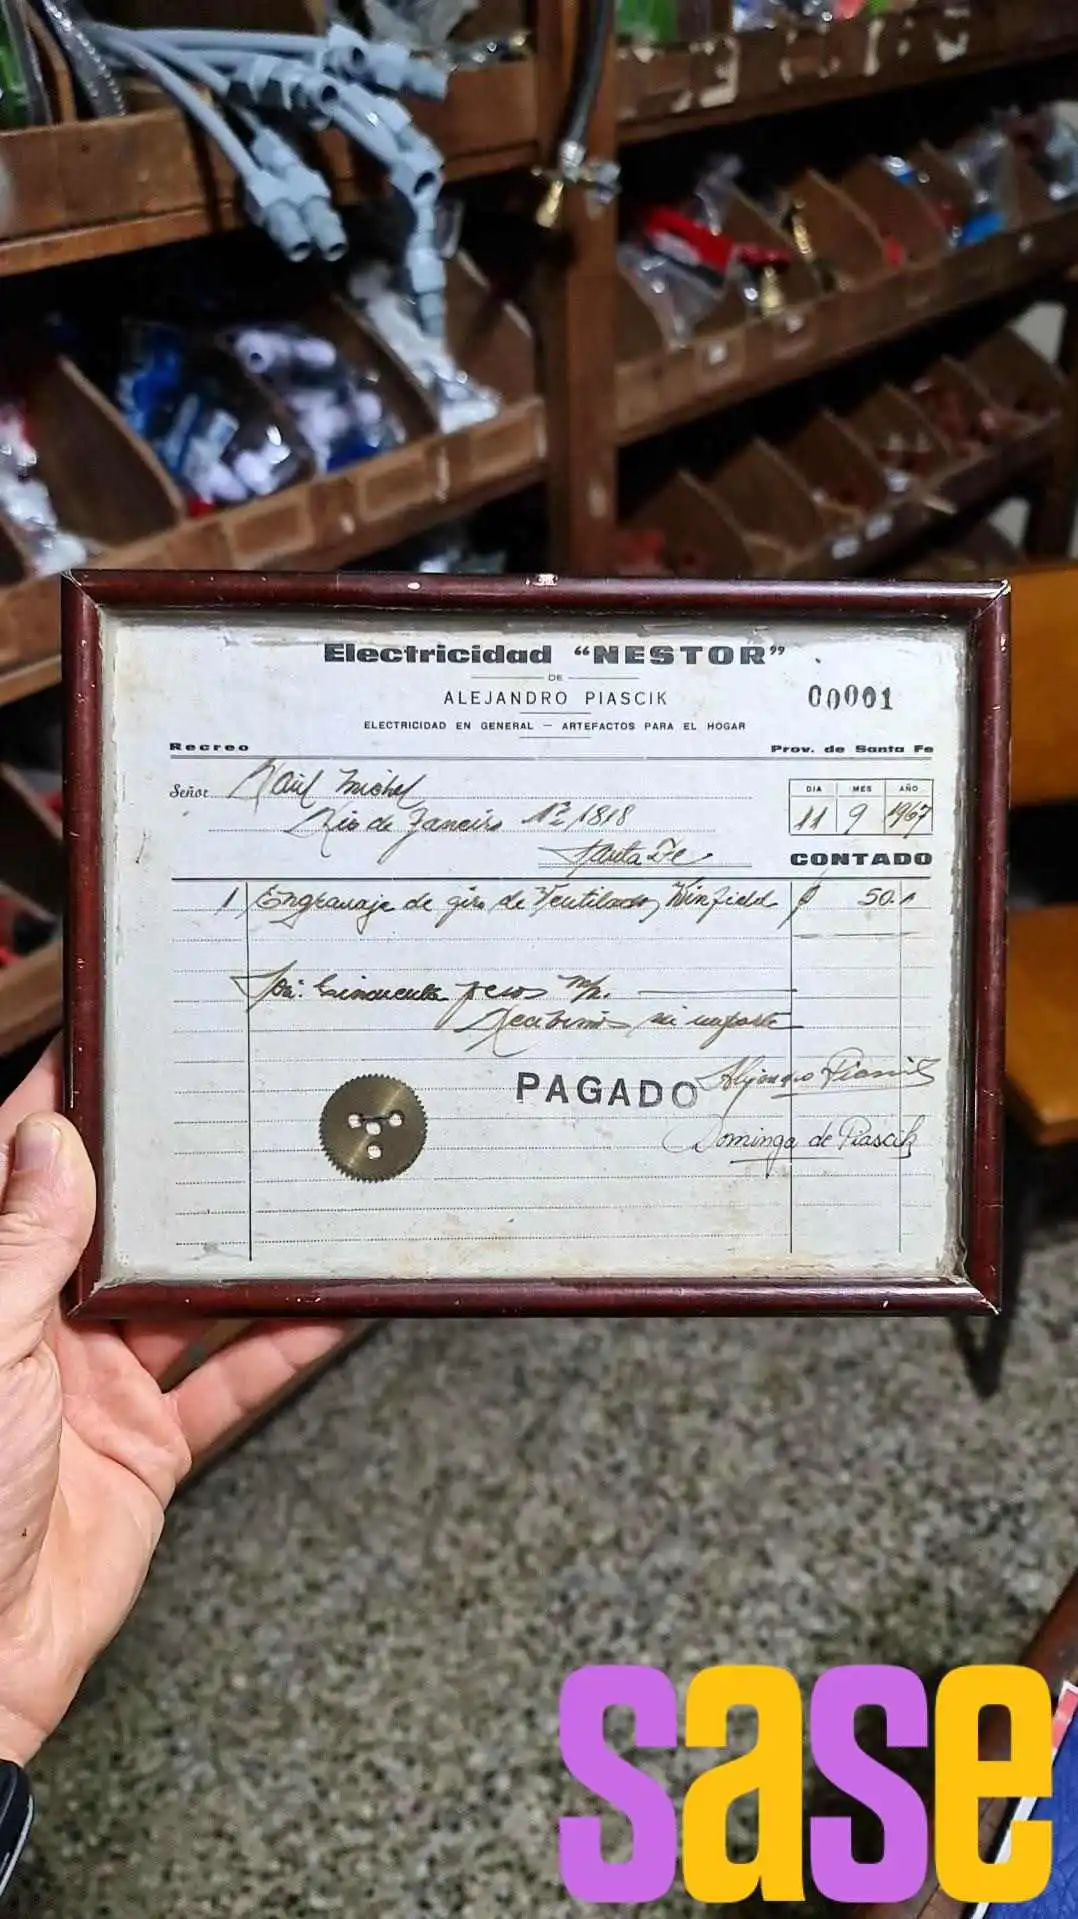 Electricidad “NESTOR”
DE
ALEJANDRO PIASCIK
00001
ELECTRICIDAD EN GENERAL — ARTEFACTOS PARA EL HOGAR
Recreo
Prov. de Santa Fe
Señor Raúl Michel
Rio de Janeiro Nº 1818
Santa Fe
DIA MES AÑO
11 9 1967
CONTADO
1 Engranaje de giro de Ventilador Winfield $ 50.-
Son: Cincuenta pesos m/n.
Recibimos su importe
PAGADO
Alejandro Piascik
Dominga de Piascik
sase